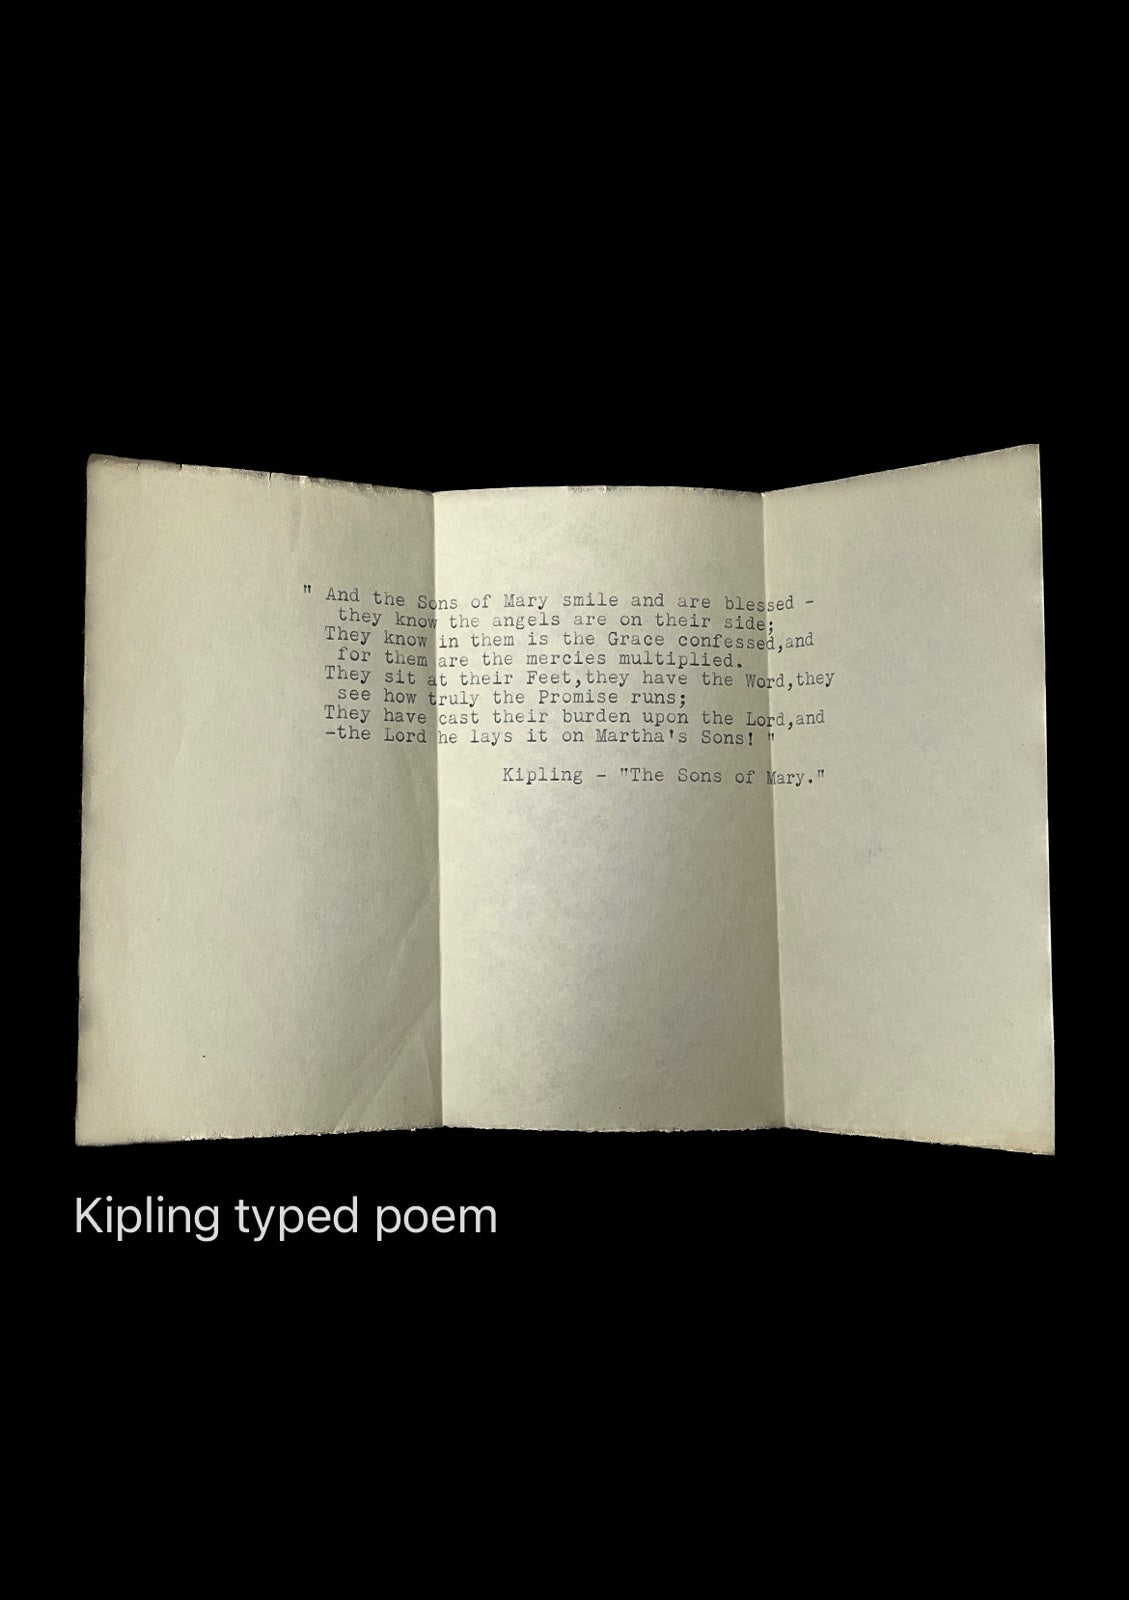 " And the Sons of Mary smile and are blessed -
they know the angels are on their side;
They know in them is the Grace confessed,and
for them are the mercies multiplied.
They sit at their Feet,they have the Word,they
see how truly the Promise runs;
They have cast their burden upon the Lord,and
-the Lord he lays it on Martha's Sons! "
Kipling - "The Sons of Mary."
Kipling typed poem